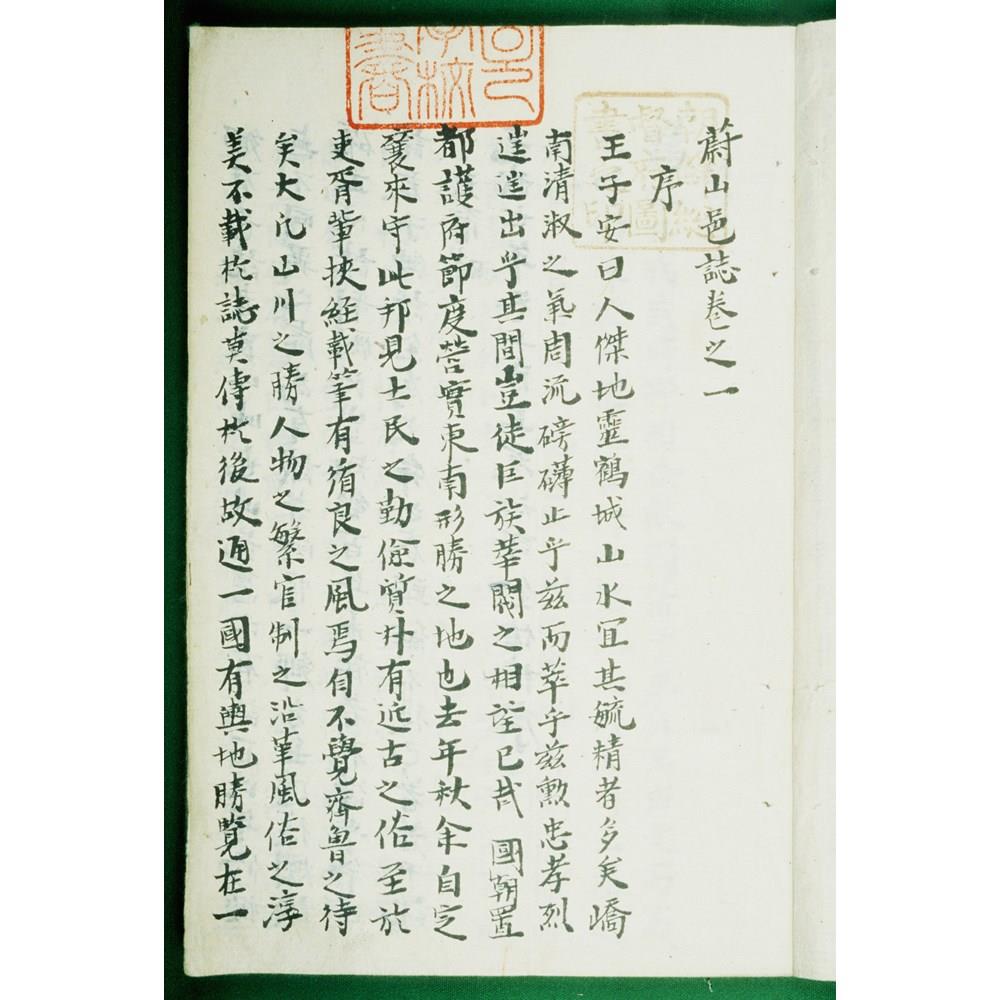 蔚山邑誌卷之一
序
王子安曰人傑地靈鶴城山水宜其毓精者多矣嶠
南清淑之氣周流磅礴止乎茲而萃乎茲勲忠孝烈
迭迭出乎其間豈徒巨族華閥之相望已哉 國朝置
都護府節度營實東南形勝之地也去年秋余自定
襄來守此邦見士民之勤儉質朴有近古之俗至於
吏胥輩挾經載筆有循良之風焉自不覺齊魯之待
矣大凡山川之勝人物之繁官制之沿革風俗之淳
美不載於誌莫傳於後故通一國有輿地勝覽在一